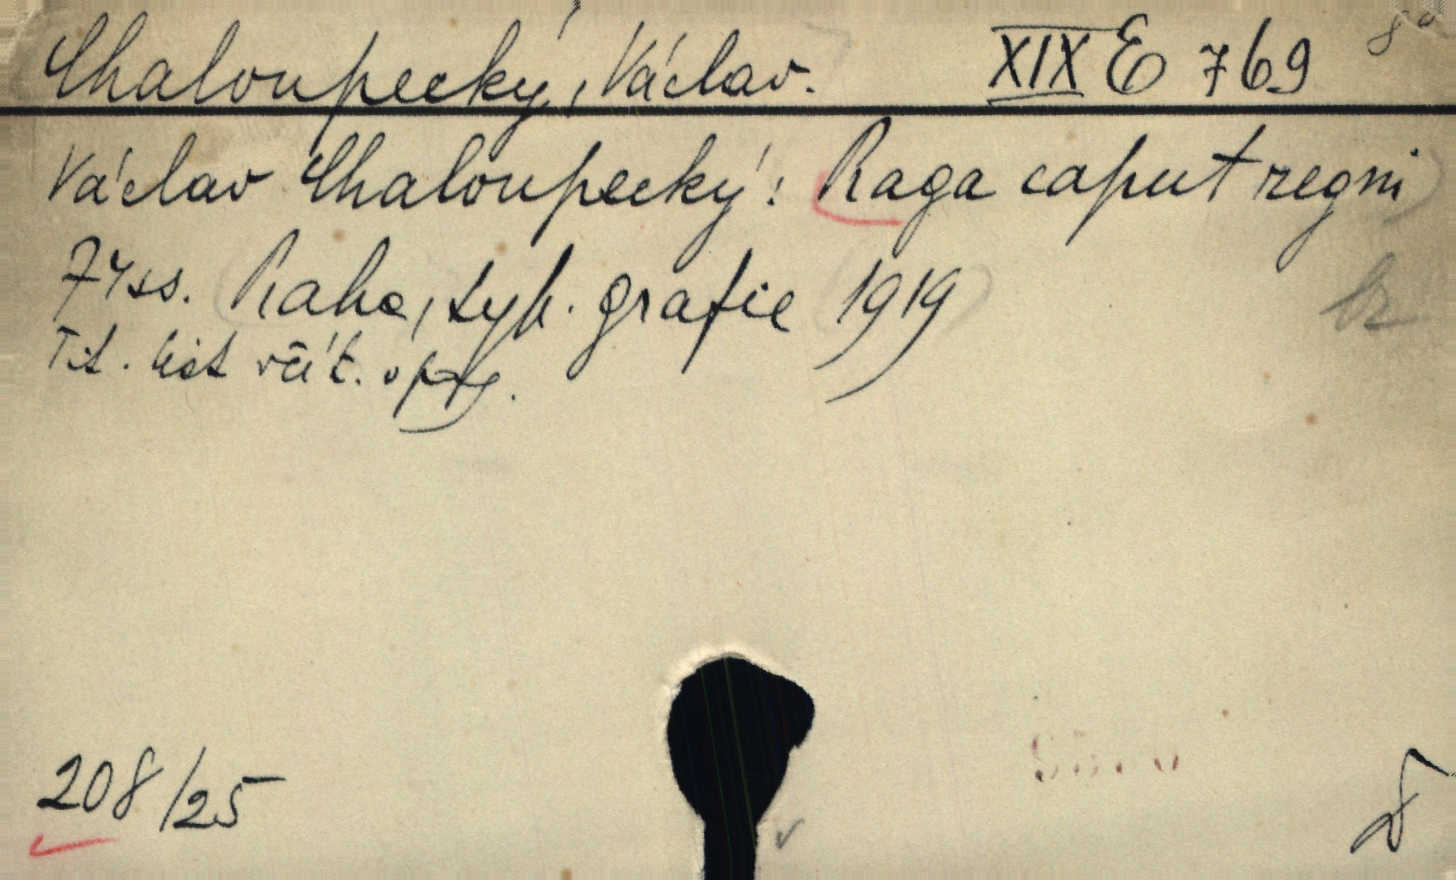 Chaloupecký, Václav. XIX E 769 8°
Václav Chaloupecký: Praga caput regni
74 ss. Praha, typ. grafie 1919
Tit. list včít.
208/25